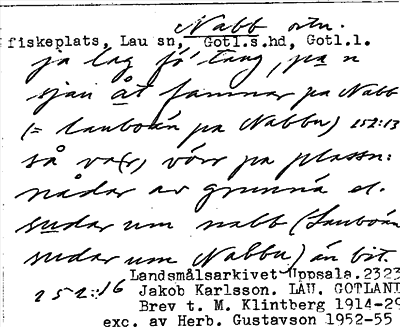 Nabb ortn.
fiskeplats, Lau sn, Gotl.s.hd, Gotl.l.
ja lag fö tang, pa n
sjan åt famnar pa Nabb
(= lauboån pa Nabbu) 252:13
så va(r) vörr pa plassn:
nådar av grunnå el.
sudar um nabb (Lauboån
sudar um Nabbu) än bit.
252:16
Landsmålsarkivet Uppsala. 2323
Jakob Karlsson. LAU. GOTLAND
Brev t. M. Klintberg 1914-29
exc. av Herb. Gustavson 1952-55